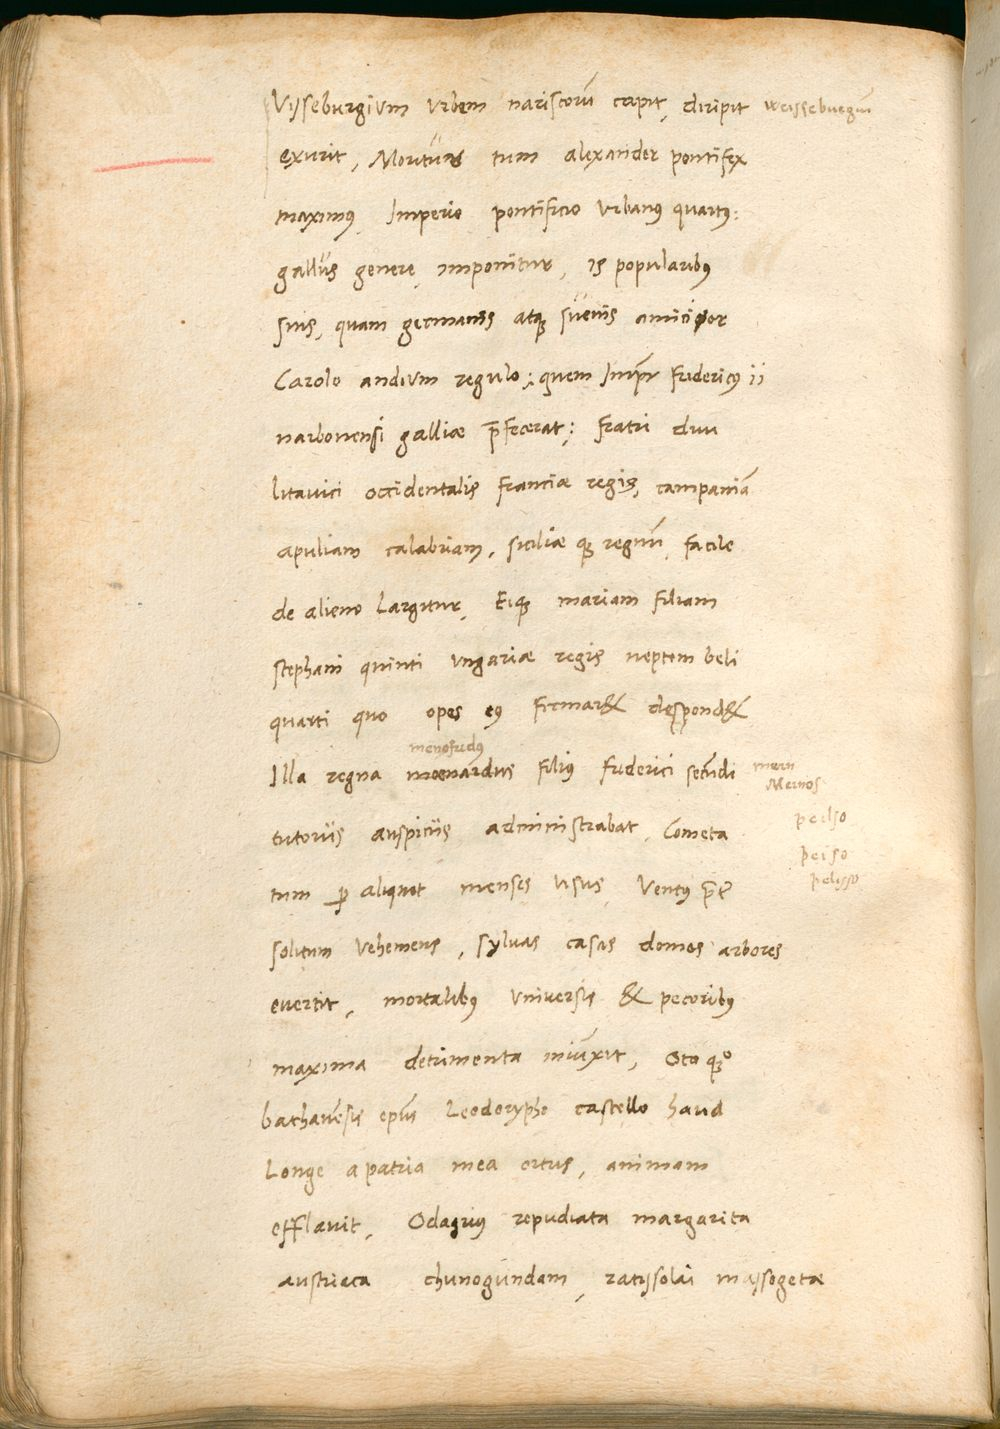 Vysseburgivm vrbem nariscorū capit, diripit weissebuegiū
exurit, Mortuus tum alexander pontifex
maximꝰ Imperio pontificio Vrbanꝰ quartꝰ:
gallus genere imponitur, is popularibꝰ
suis, quam germanis atqꝫ suevis amicior
Carolo andium regulo; quem Impr̄ fridericꝰ ii
narbonensi galliæ p̄fecerat; fratri divi
litavici occidentalis franciæ regis, campaniā
apuliam calabriam, siciliæ qꝫ regnū facile
de alieno largitur, Eiqꝫ mariam filiam
stephani quinti vngariæ regis neptem beli
quarti quo opes eꝰ firmar& despond&
menofridꝰ
Illa regna moenardus filiꝰ friderici secūdi mern
Mernos
tutoriis auspiciis administrabat, Cometa peilso
peiso
tum ꝑ aliquot menses visus Ventꝰ p̄t̄ pelisso
solitum vehemens, sylvas casas domos arbores
evertit, mortalibꝰ universis & pecoribꝰ
maxima detrimenta iniūxit, Oto qꝫo
bathavēsis epūs Leodorypho castello haud
longe a patria mea ortus, animam
efflavit, Odacrius repudiata margarita
austriaca chunogundam, ratissolai massogetæ